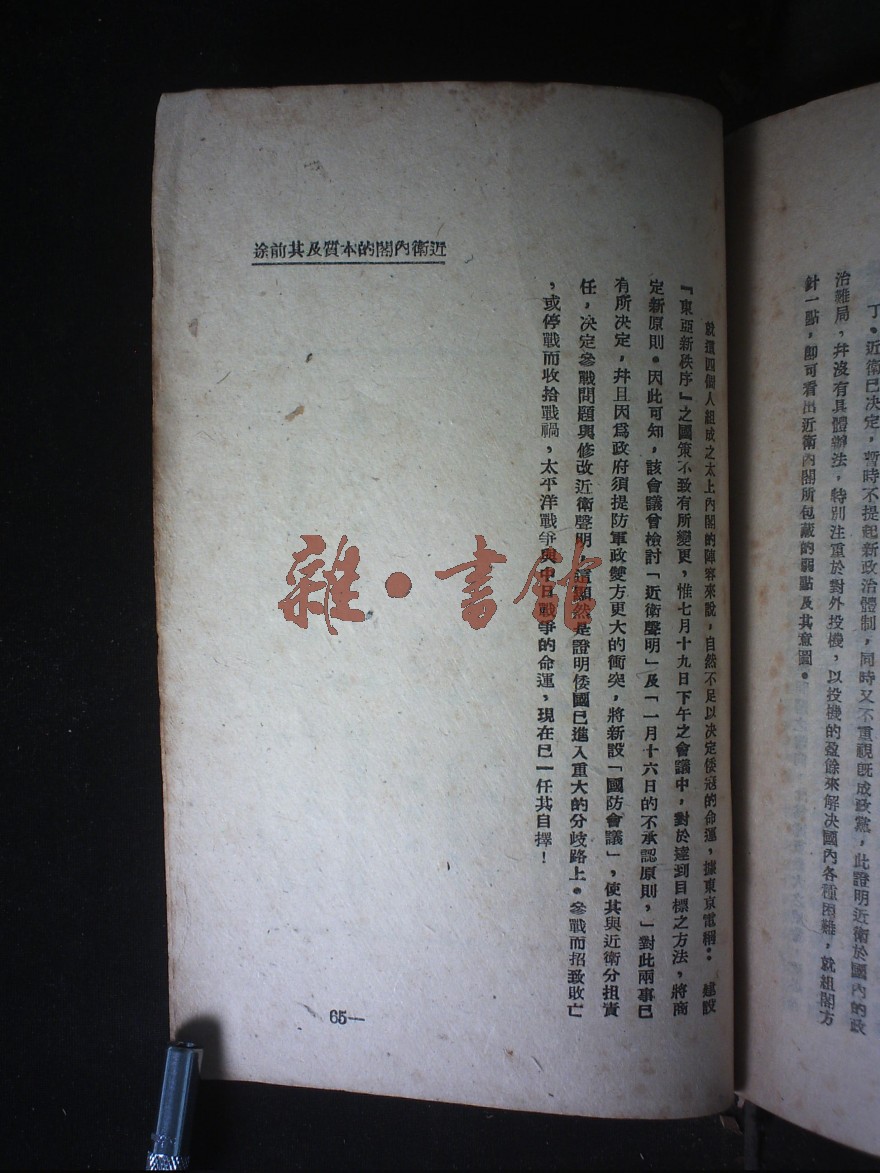 丁。近衛已决定，暫時不提起新政治體制，同時又不重視旣成政黨，此證明近衛於國內的政
治難局，幷沒有具體辦法，特別注重於對外投機，以投機的盈餘來解决國內各種困難，就組閣方
針一點，卽可看出近衛內閣所包蔵的弱點及其意圖。
近衛內閣的本質及其前途
就這四個人組成之太上內閣的陣容來說，自然不足以决定倭寇的命運，據東京電稱：建設
『東亞新秩序』之國策不致有所變更，惟七月十九日下午之會議中，對於達到目標之方法，將商
定新原則。因此可知，該會議曾檢討「近衛聲明」及「一月十六日的不承認原則，」對此兩事已
有所决定，幷且因爲政府須提防軍政雙方更大的衝突，將新設「國防會議」，使其與近衛分担責
任，决定參戰問題與修改近衛聲明，這顯然是證明倭國已進入重大的分歧路上。參戰而招致敗亡
，或停戰而收拾戰禍，太平洋戰爭與中日戰爭的命運，現在已一任其自擇！
65—
雜·書館